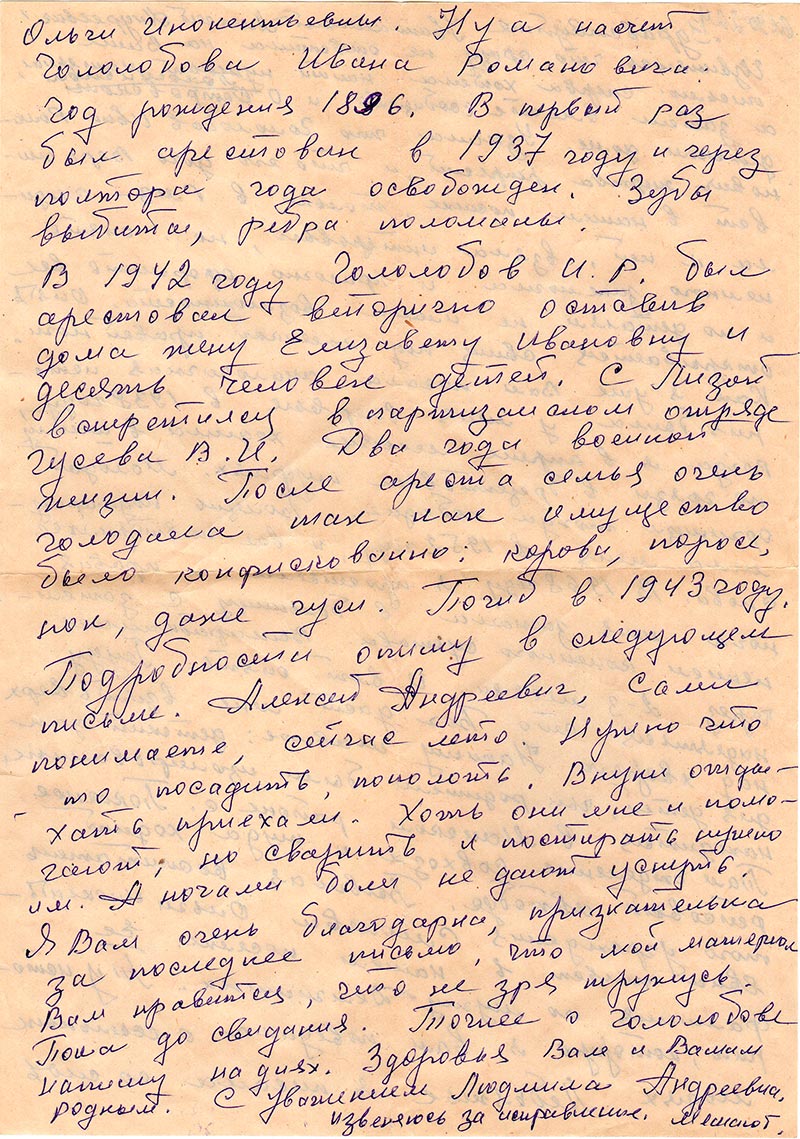 Ольги Инокентьевны. Ну а насчет
Гололобова Ивана Романовича.
Год рождения 1886. В первый раз
был арестован в 1937 году и через
полтора года освобожден. Зубы
выбиты, ребра поломаны.
В 1942 году Гололобов И. Р. был
арестован вторично оставив
дома жену Елизавету Ивановну и
десять человек детей. С Лизой
встретилсь в партизанском отряде
Гусева В. И. Два года военной
жизни. После ареста семья очень
голодала так как имущество
было конфискованно: корова, порос,
нок, даже гуси. Погиб в 1943 году.
Подробности опишу в следующем
письме. Алексей Андреевич, Сами
понимаете, сейчас лето. Нужно что
- то посадить, пополоть. Внуки отды-
хать приехали. Хоть они мне и помо-
гают, но сварить и постирать нужно
им. А ночами боли не дают уснуть.
Я Вам очень благодарна, признательна
за последнее письмо, что мой материал
Вам нравится, что не зря тружусь.
Пока до свидания. Точнее о Гололобове
напишу на днях. Здоровья Вам и Вашим
родным. С уважением Людмила Андреевна.
извеняюсь за исправление. Мешают.